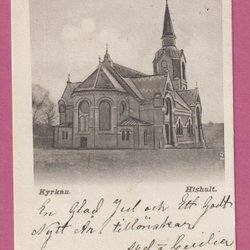 Kyrkan. Hishult.
En Glad Jul och Ett Godt
Nytt År tillönskar
Cecilia